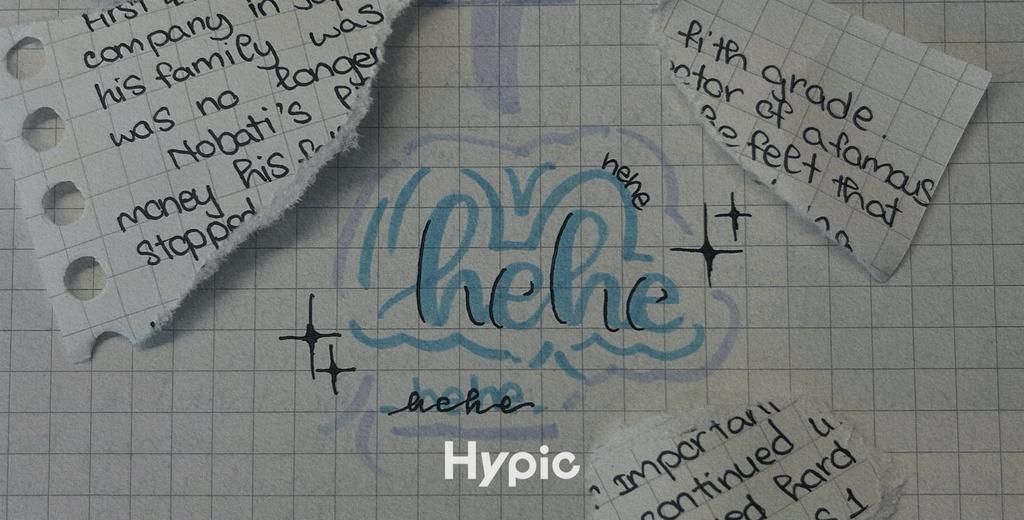 company in
his family was
was no longer
Nobati's
money his
stopped
fith grade.
of a famous
feet that
hehe
hehe
hehe
hehe
Hypic
: Importan
continued u
hard
1